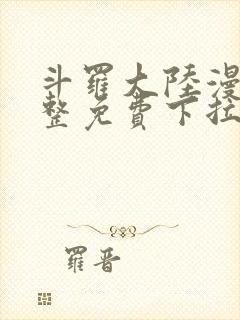 斗羅大陸漫
整免費下拉
羅晋